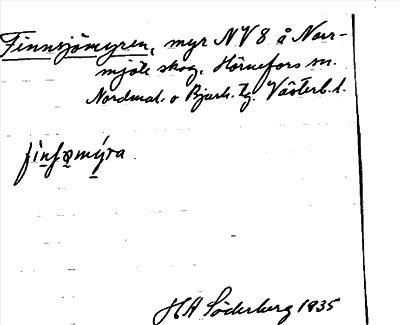 Finnsjömyren, myr NV8 å Norr-
mjöle skog. Hörnefors sn.
Nordmal. o Bjurh. tg. Västerb. l.
HA Söderberg 1935